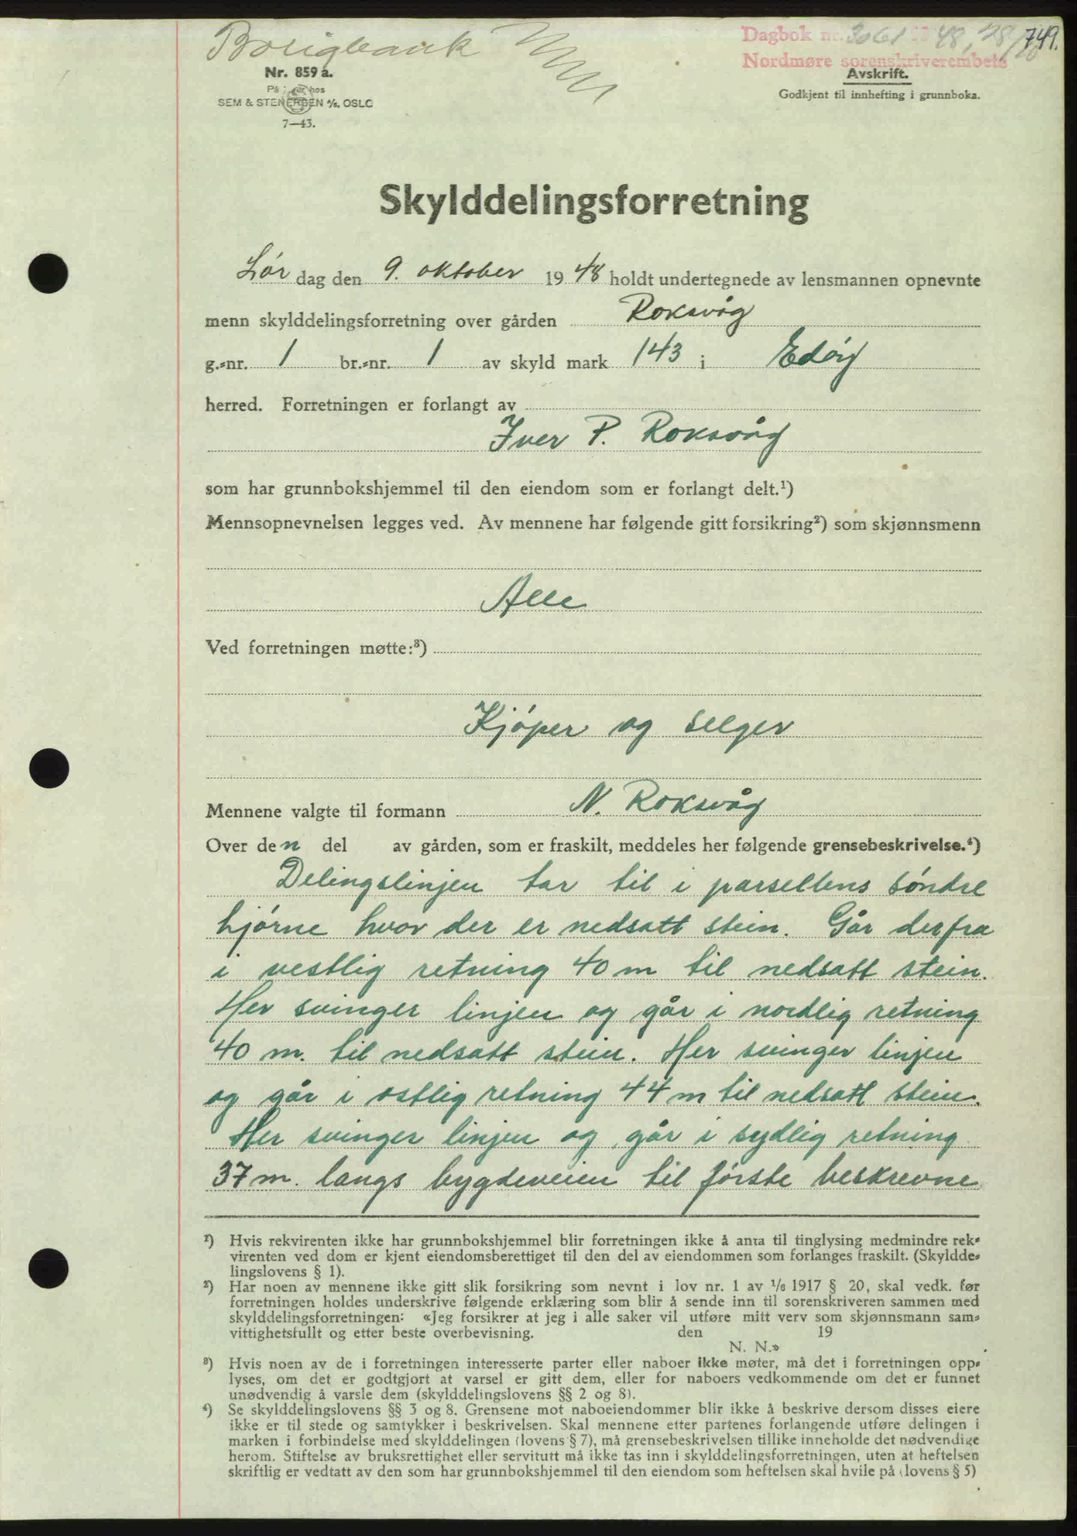 Boligbank
Dagbok nr. 3061 1948, 28/10 749.
Nordmøre sorenskriverembete
Nr. 859 a.
På lager hos
SEM & STENERSEN A/S, OSLO
7—43.
Avskrift.
Godkjent til innhefting i grunnboka.
Skylddelingsforretning
Lør dag den 9. oktober 1948 holdt undertegnede av lensmannen opnevnte
menn skylddelingsforretning over gården Roksvåg
g.-nr. 1 br.-nr. 1 av skyld mark 143 i Edøy
herred. Forretningen er forlangt av
Iver P. Roksvåg
som har grunnbokshjemmel til den eiendom som er forlangt delt.¹)
Mennsopnevnelsen legges ved. Av mennene har følgende gitt forsikring²) som skjønnsmenn
Alle
Ved forretningen møtte:³)
Kjøper og selger
Mennene valgte til formann N. Roksvåg
Over den del av gården, som er fraskilt, meddeles her følgende grensebeskrivelse.⁴)
Delingslinjen tar til i parsellens søndre
hjørne hvor der er nedsatt stein. Går derfra
i vestlig retning 40 m til nedsatt stein.
Her svinger linjen og går i nordlig retning
40 m. til nedsatt stein. Her svinger linjen
og går i østlig retning 44 m til nedsatt stein.
Her svinger linjen og går i sydlig retning
37 m. langs bygdeveien til første beskrevne
¹) Hvis rekvirenten ikke har grunnbokshjemmel blir forretningen ikke å anta til tinglysing medmindre rek-
virenten ved dom er kjent eiendomsberettiget til den del av eiendommen som forlanges fraskilt. (Skyldde-
lingslovens § 1).
²) Har noen av mennene ikke gitt slik forsikring som nevnt i lov nr. 1 av 1/6 1917 § 20, skal vedk. før
forretningen holdes underskrive følgende erklæring som blir å sende inn til sorenskriveren sammen med
skylddelingsforretningen: «Jeg forsikrer at jeg i alle saker vil utføre mitt verv som skjønnsmann sam-
vittighetsfullt og etter beste overbevisning. den 19
N. N.»
³) Hvis noen av de i forretningen interesserte parter eller naboer ikke møter, må det i forretningen opp-
lyses, om det er godtgjort at varsel er gitt dem, eller for naboers vedkommende om det er funnet
unødvendig å varsle dem (skylddelingslovens §§ 2 og 8).
⁴) Se skylddelingslovens §§ 3 og 8. Grensene mot naboeiendommer blir ikke å beskrive dersom disses eiere
ikke er til stede og samtykker i beskrivelsen. Skal mennene etter partenes forlangende utføre delingen i
marken i forbindelse med skylddelingen (lovens § 7), må grensebeskrivelsen tillike inneholde det nødvendige
herom. Stiftelse av bruksrettighet eller servitutt må ikke tas inn i skylddelingsforretningen, uten at heftelsen
skriftlig er vedtatt av den som har grunnbokshjemmel til den eiendom som heftelsen skal hvile på (lovens § 5)